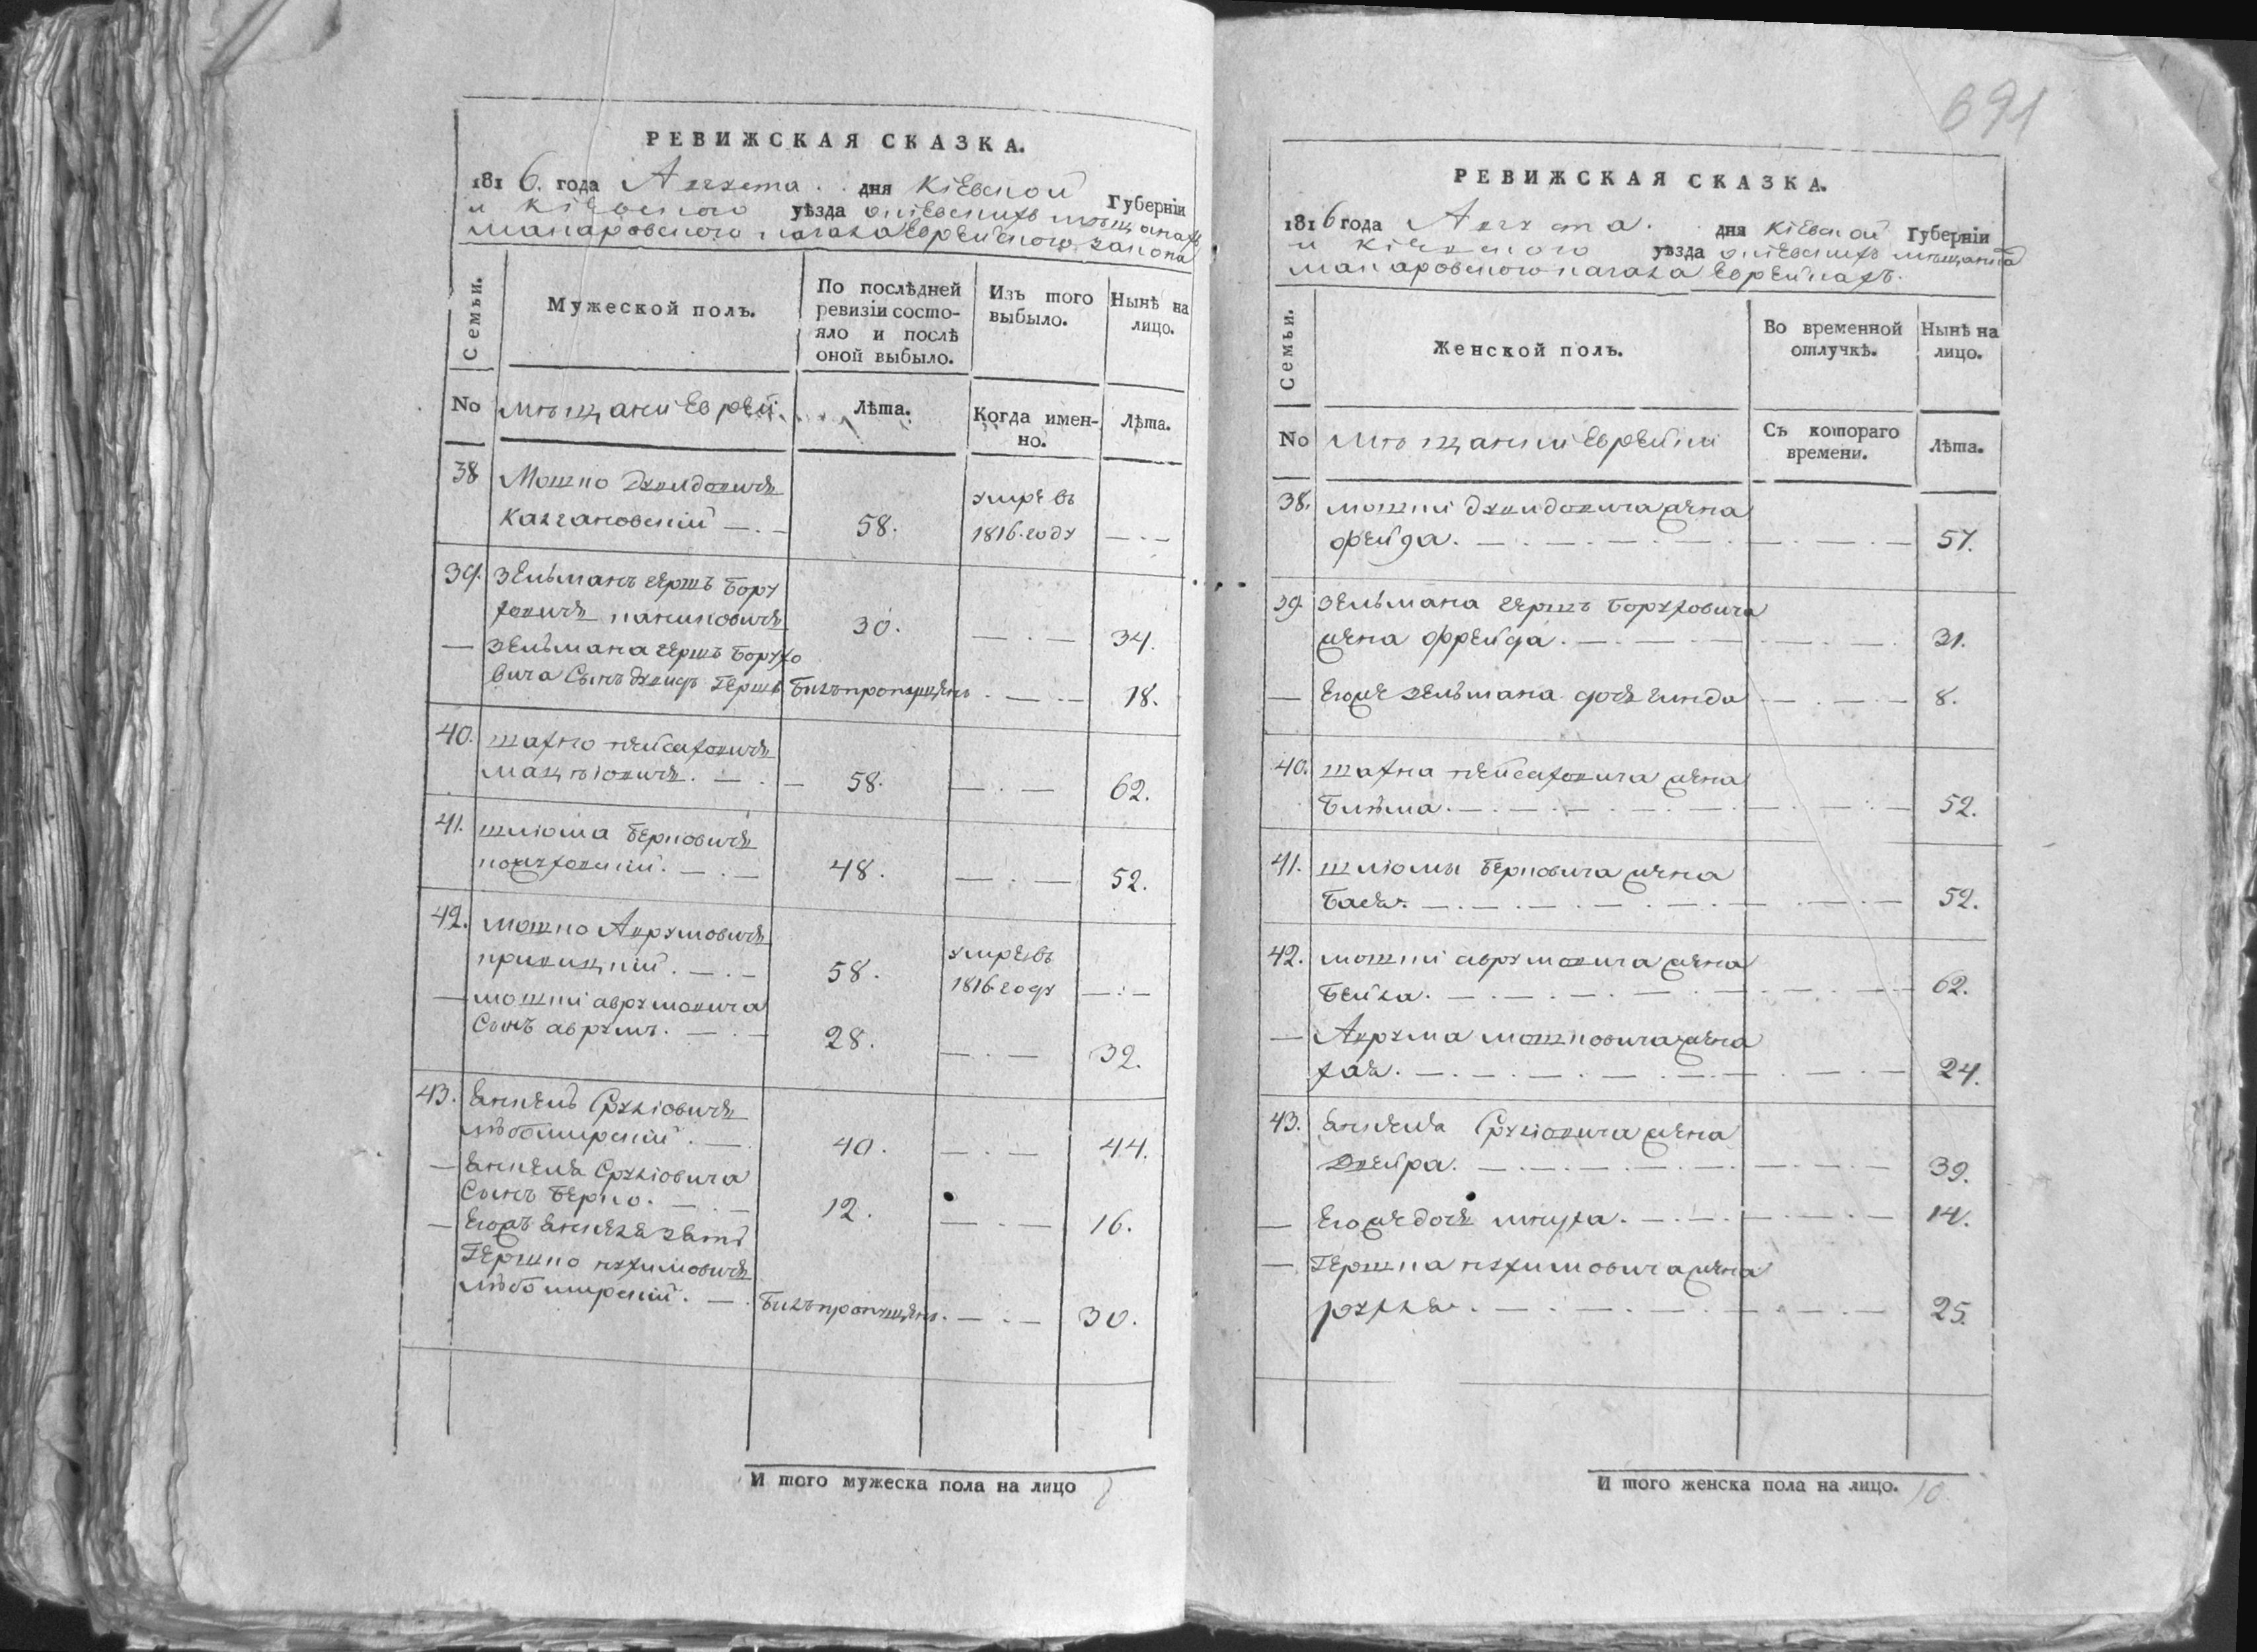 691
РЕВИЖСКАЯ СКАЗКА.
1816. года Августа. дня Кіевской Губерніи
и Кіевского уѣзда о кіевскихъ мѣщанахъ
макаровского кагала Еврейского закона
Семьи.
Мужеской полъ.
По послѣдней ревизіи состо-яло и послѣ оной выбыло.
Изъ того выбыло.
Нынѣ на лицо.
No
мѣщани Еврей.
Лѣта.
Когда имен-но.
Лѣта.
38 Мошко Дувидовичъ умре въ
58. 1816 году — . —
39. Зельманъ гершъ Бору
ховичъ 30. — . — 34.
— Зельмана гершъ Борухо
вича Сынъ Дувидъ Гершъ Былъ пропущенъ. — . — 18.
40. шахно пейсаховичъ
58. — . — 62.
41. шліома Берковичъ
48. — . — 52.
42. мошко Аврумовичъ умре въ
58. 1816 году — . —
— мошки аврумовича
Сынъ аврумъ. — . — 28. — . — 32.
43. Янкель Сруліовичъ
любомирскій. — 40. — . — 44.
— Янкеля Сруліовича
Сынъ Берко. — . — 12. — . — 16.
— Егожъ Янкеля зять
Гершко нухимовичъ
любомирскій. — . Былъ пропущенъ. — . — 30.
И того мужеска пола на лицо
РЕВИЖСКАЯ СКАЗКА.
1816 года Августа. дня Кіевской Губерніи
и Кіевского уѣзда о кіевскихъ мѣщанхъ
макаровского кагала Еврейкахъ.
Семьи.
Женской полъ.
Во временной отлучкѣ.
Нынѣ на лицо.
No
Мѣщанки Еврейки
Съ котораго времени.
Лѣта.
38. мошки дувидовича жена
фрейда. 57.
39. Зельмана гершъ Боруховича
жена ффрейда. 31.
— Егоже зельмана дочь гинда 8.
40. шахна пейсаховича жена
52.
41. шліомы Берковича жена
Бася. 52.
42. мошки аврумовича жена
Бейла. 62.
— Аврума мошковича жена
хая. 24.
43. Янкеля Сруліовича жена
Двейра. 39.
— Егоже дочь 14.
— Гершка нухимовича жена
рухля. 25.
И того женска пола на лицо. 10.